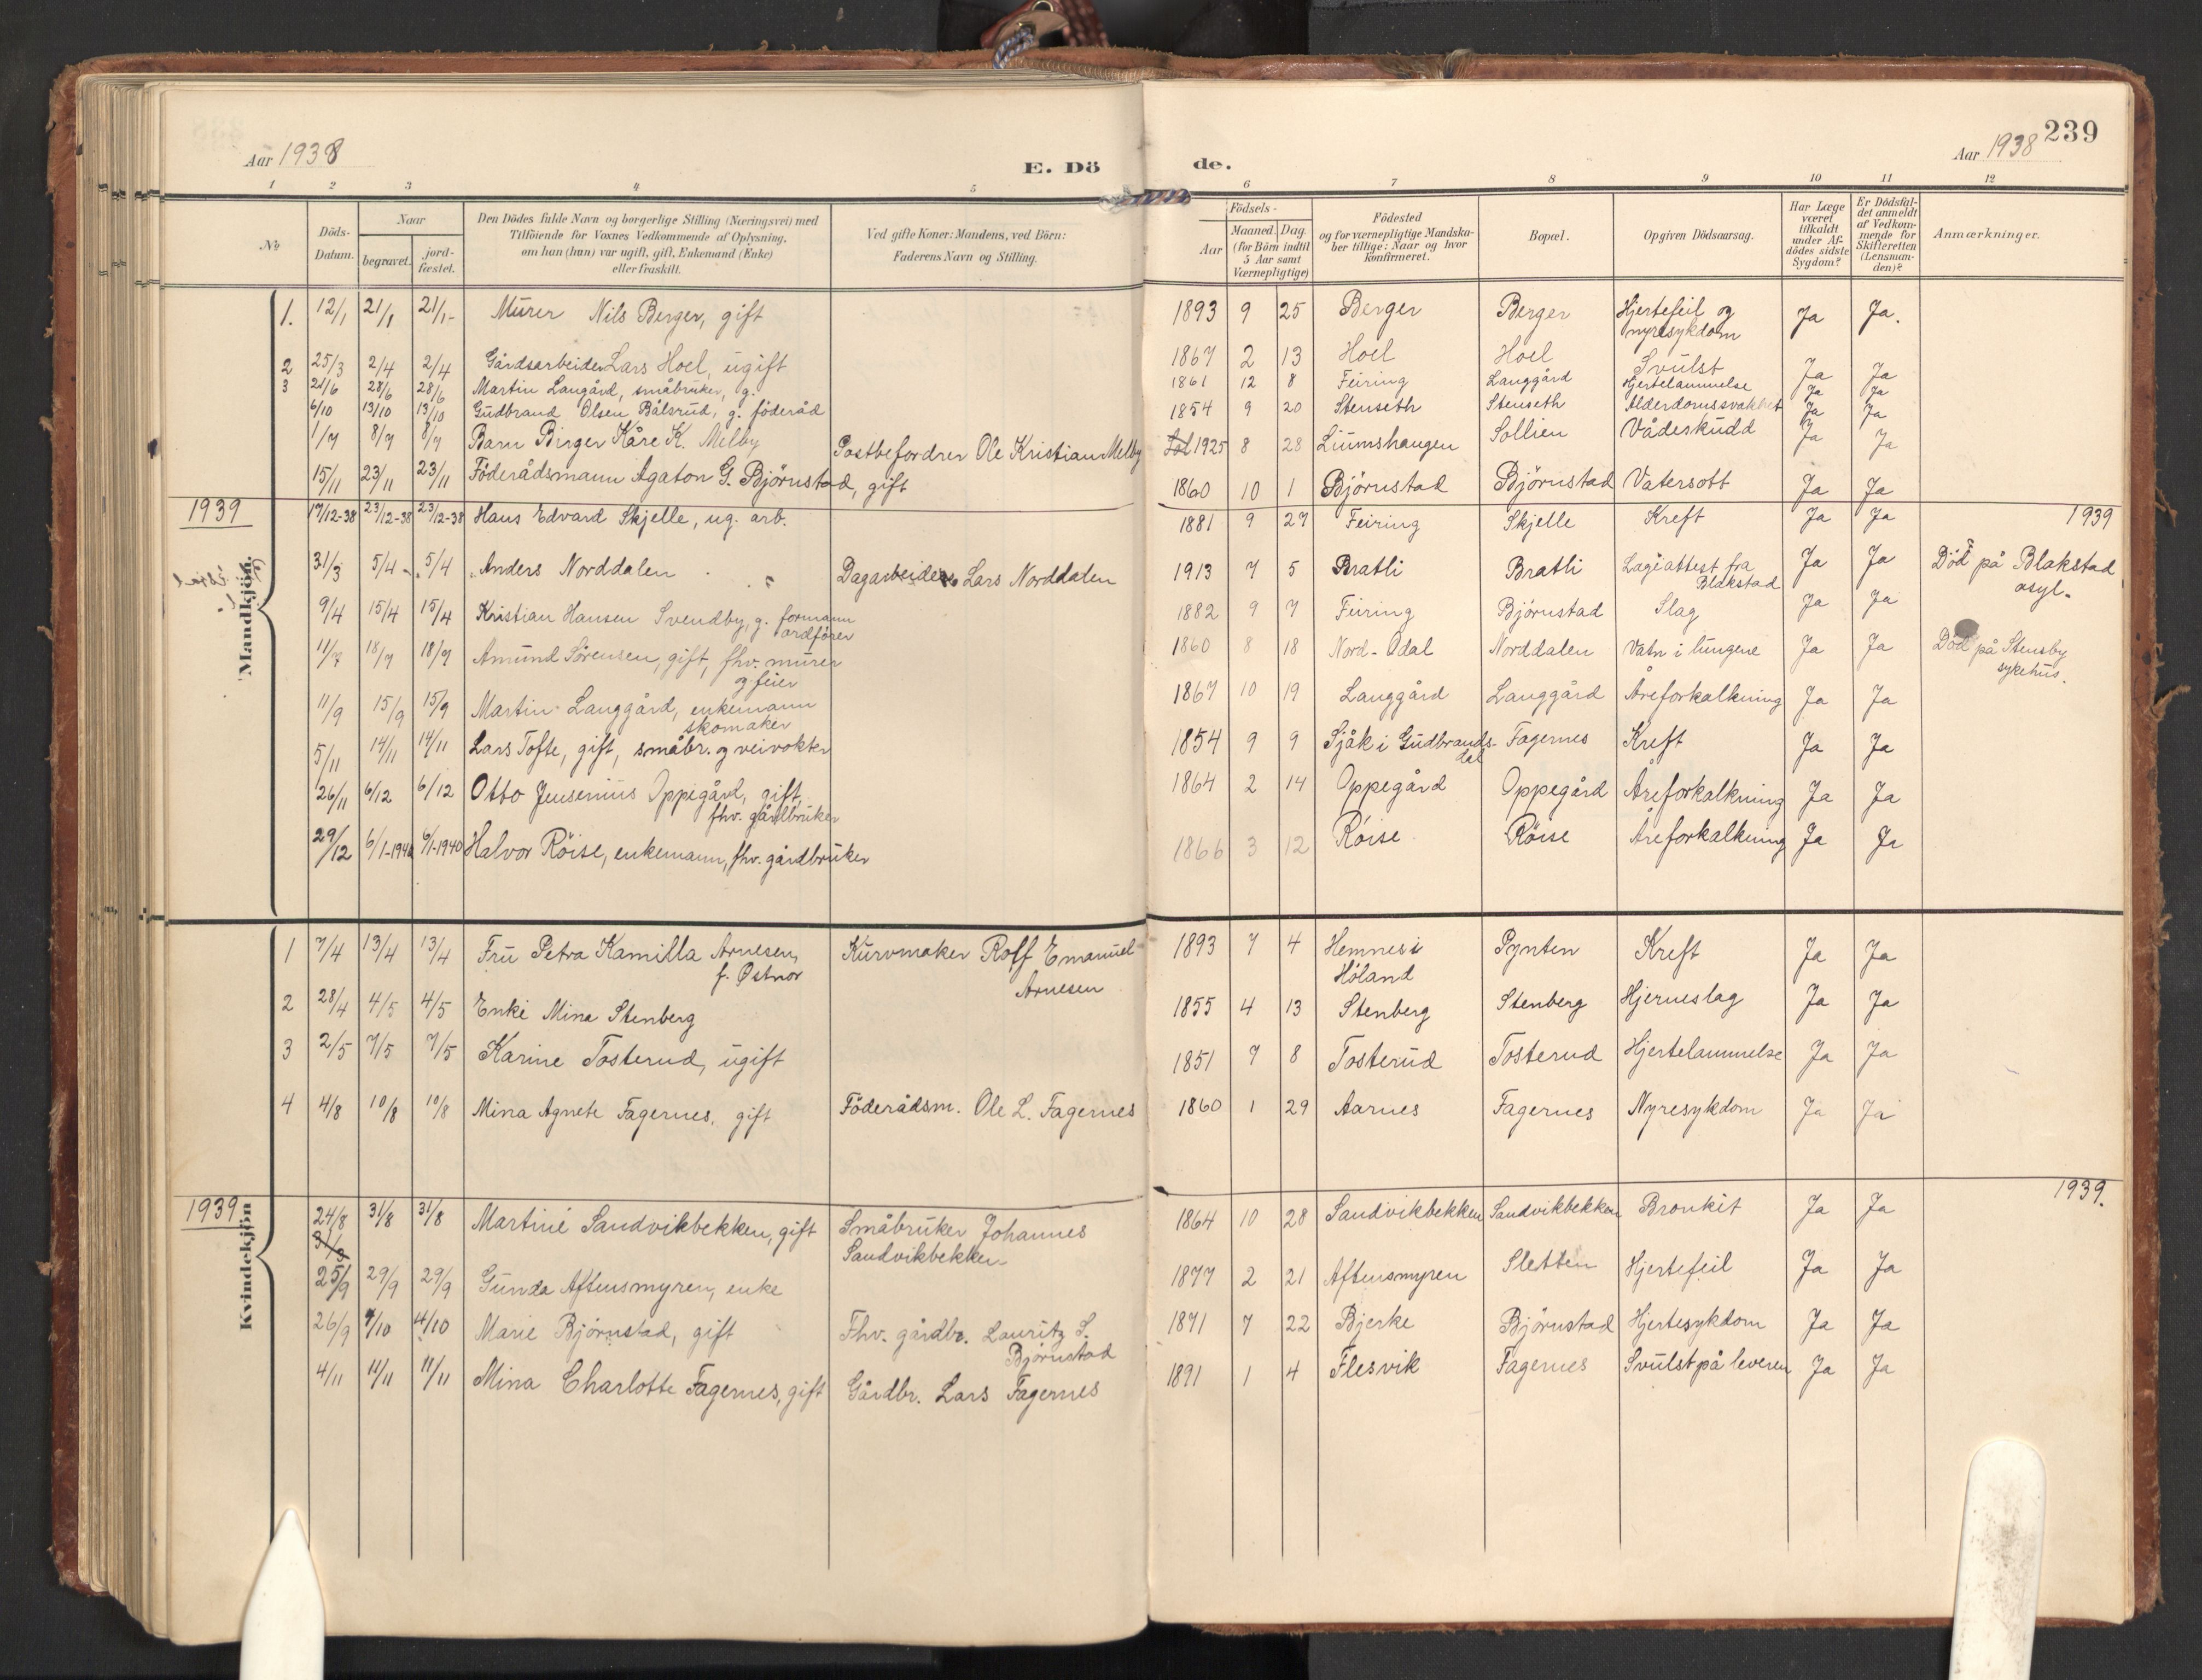 Aar 1938
E. Dö
de.
Aar 1938
239
1 2 3 4 5 6 7 8 9 10 11 12
No
Döds-Datum.
Naar
begravet.
jord-fæstet.
Den Dödes fulde Navn og borgerlige Stilling (Næringsvei) med
Tilföiende for Voxnes Vedkommende af Oplysning,
om han (hun) var ugift, gift, Enkemand (Enke)
eller fraskilt.
Ved gifte Koner: Mandens, ved Börn:
Faderens Navn og Stilling.
Födsels-
Aar
Maaned. Dag.
(for Börn indtil
5 Aar samt
Værnepligtige)
Födested
og for værnepligtige Mandska-
ber tillige: Naar og hvor
konfirmeret.
Bopæl.
Opgiven Dödsaarsag.
Har Læge
været
tilkaldt
under Af-
dödes sidste
Sygdom?
Er Dödsfal-
det anmeldt
af Vedkom-
mende for
Skifteretten
(Lensman-
den)?
Anmærkninger.
Mandkjön.
1. 12/1 21/1 21/1- Murer Nils Berger, gift 1893 9 25 Berger Berger Hjertefeil og nyresykdom Ja Ja.
2 25/3 2/4 2/4 Gårdsarbeider Lars Hoel, ugift 1867 2 13 Hoel Hoel Svulst Ja Ja
3 21/6 28/6 28/6 Martin Langård, småbruker, g. 1861 12 8 Feiring Langgård Hjertelammelse Ja Ja
6/10 13/10 13/10 Gudbrand Olsen Bålsrud, g. föderåd 1854 9 20 Stenseth Stenseth Alderdomssvakhet Ja Ja
1/7 8/7 8/7 Barn Birger Kåre K. Melby Postbefordrer Ole Kristian Melby 1925 8 28 Liumshaugen Sollien Vådeskudd Ja Ja
15/11 23/11 23/11 Föderådsmann Agaton G. Björnstad, gift 1860 10 1 Björnstad Björnstad Vatersott Ja Ja
1939 17/12-38 23/12-38 23/12-38 Hans Edvard Skjelle, ug. arb. 1881 9 27 Feiring Skjelle Kreft Ja Ja 1939
31/3 5/4 5/4 Anders Norddalen Dagarbeider Lars Norddalen 1913 7 5 Bratli Bratli Lageattest fra Blakstad Ja Ja Död på Blakstad asyl.
9/4 15/4 15/4 Kristian Hansen Svendby, g. formann ordförer 1882 9 7 Feiring Björnstad Slag Ja Ja
11/7 18/7 18/7 Amund Sörensen, gift, fhv. murer og feier 1860 8 18 Nord-Odal Norddalen Vatn i lungene Ja Ja Död på Stensby sykehus.
11/9 15/9 15/9 Martin Langgård, enkemann skomaker 1867 10 19 Langgård Langgård Åreforkalkning Ja Ja
5/11 14/11 14/11 Lars Tofte, gift, småbr. og veivokter 1854 9 9 Sjåk i Gudbrandsdal Fagernes Kreft Ja Ja
26/11 6/12 6/12 Otto Jensenius Oppegård, gift, fhv. gårdbruker 1864 2 14 Oppegård Oppegård Åreforkalkning Ja Ja
29/12 6/1-1940 6/1-1940 Halvor Röise, enkemann, fhv. gårdbruker 1866 3 12 Röise Röise Åreforkalkning Ja Ja
Kvindekjön
1 7/4 13/4 13/4 Fru Petra Kamilla Arnesen, f. Østnor Kurvmaker Rolf Emanuel Arnesen 1893 7 4 Hemnes i Höland Pynten Kreft Ja Ja
2 28/4 4/5 4/5 Enke Mina Stenberg 1855 4 13 Stenberg Stenberg Hjerneslag Ja Ja
3 2/5 7/5 7/5 Karine Tosterud, ugift 1851 7 8 Tosterud Tosterud Hjertelammelse Ja Ja
4 4/8 10/8 10/8 Mina Agnete Fagernes, gift Föderådsm. Ole L. Fagernes 1860 1 29 Aarnes Fagernes Nyresykdom Ja Ja
1939 24/8 31/8 31/8 Martine Sandvikbekken, gift Småbruker Johannes Sandvikbekken 1864 10 28 Sandvikbekken Sandvikbekken Bronkit Ja Ja 1939.
25/9 29/9 29/9 Gunda Aftensmyren, enke 1877 2 21 Aftensmyren Sletten Hjertefeil Ja Ja
26/9 4/10 4/10 Marie Björnstad, gift Fhv. gårdbr. Lauritz S. Björnstad 1871 7 22 Bjerke Björnstad Hjertesykdom Ja Ja
4/11 11/11 11/11 Mina Charlotte Fagernes, gift Gårdbr. Lars Fagernes 1891 1 4 Flesvik Fagernes Svulst på leveren Ja Ja